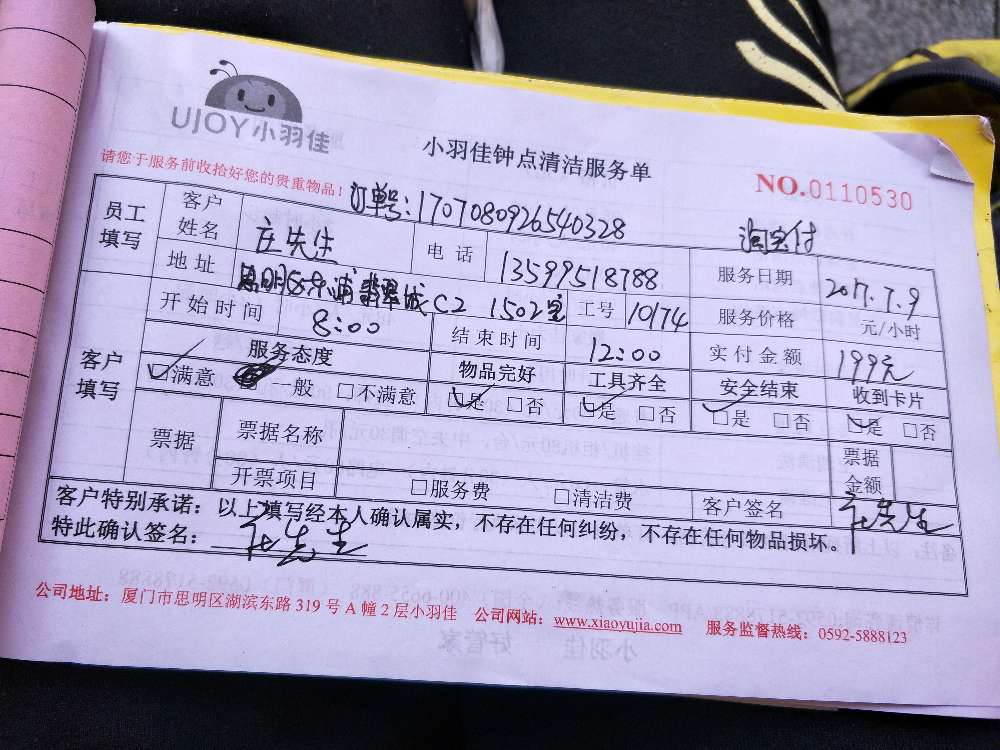 UJOY小羽佳
小羽佳钟点清洁服务单
请您于服务前收拾好您的贵重物品！
NO.0110530
订单号:1707080926540328
淘宝付
员工填写
客户姓名 庄先生 电话 13599518788 服务日期 2017.7.9
地址 思明区 翡翠城C2 1502室 工号 10174 服务价格 元/小时
开始时间 8:00 结束时间 12:00 实付金额 199元
客户填写
服务态度 物品完好 工具齐全 安全结束 收到卡片
☑满意 一般 □不满意 ☑是 □否 ☑是 □否 ☑是 □否 ☑是 □否
票据 票据名称 票据金额
开票项目 □服务费 □清洁费 客户签名 庄先生
客户特别承诺：以上填写经本人确认属实，不存在任何纠纷，不存在任何物品损坏。
特此确认签名： 庄先生
公司地址：厦门市思明区湖滨东路319号A幢2层小羽佳 公司网站：www.xiaoyujia.com 服务监督热线：0592-5888123